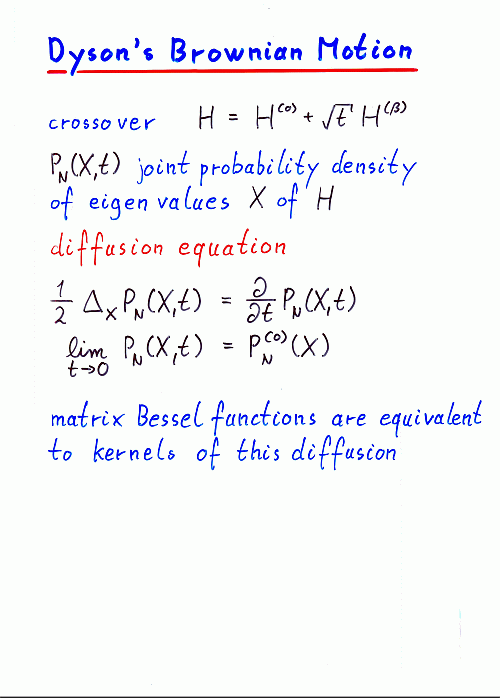 Dyson's Brownian Motion
crossover H = H^(0) + √t H^(β)
P_N(X,t) joint probability density
of eigen values X of H
diffusion equation
1/2 Δ_X P_N(X,t) = ∂/∂t P_N(X,t)
lim t→0 P_N(X,t) = P_N^(0)(X)
matrix Bessel functions are equivalent
to kernels of this diffusion